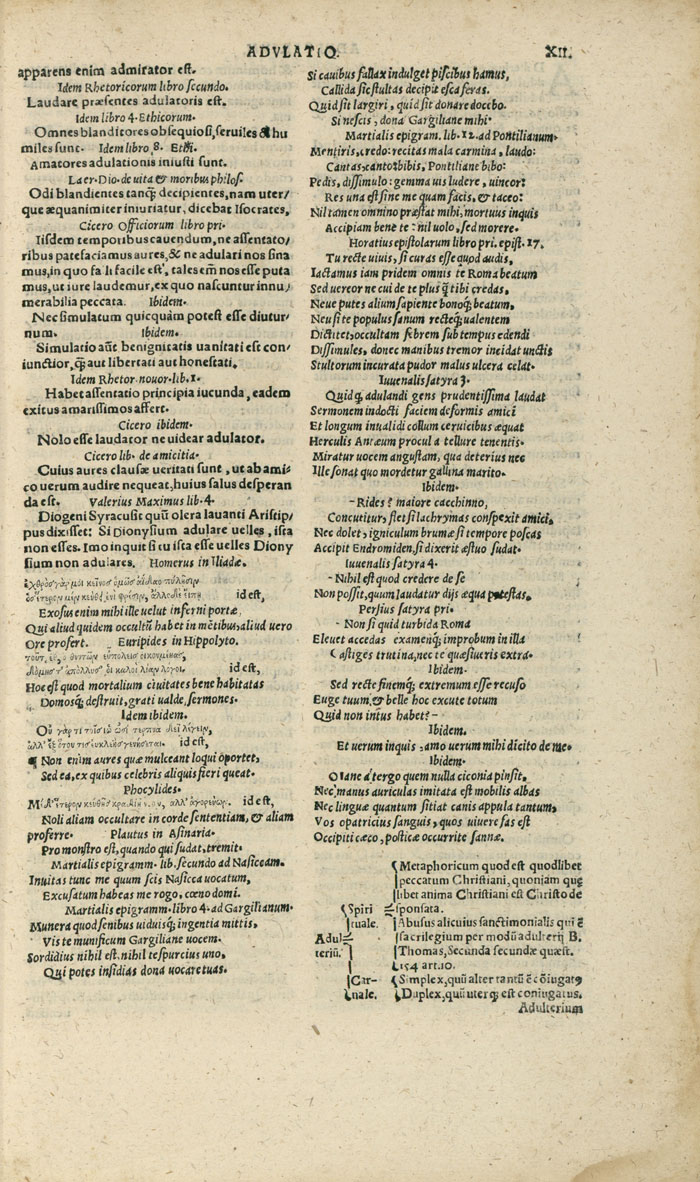 ADVLATIO.
XII.
apparens enim admirator est.
Idem Rhetoricorum libro secundo.
Laudare præsentes adulatoris est.
Idem libro 4. Ethicorum.
Omnes blanditores obsequiosi, seruiles & hu
miles sunt. Idem libro 8. Ethi.
Amatores adulationis iniusti sunt.
Laer. Dio. de uita & moribus philos.
Odi blandientes tanq̃ decipientes, nam uter/
que æquanimiter iniuriatur, dicebat Isocrates.
Cicero Officiorum libro pri.
Iisdem temporibus cauendum, ne assentato/
ribus patefaciamus aures, & ne adulari nos sina
mus, in quo falli facile est, tales em̃ nos esse puta
mus, ut iure laudemur, ex quo nascuntur innu/
merabilia peccata. Ibidem.
Nec simulatum quicquàm potest esse diutur/
num. Ibidem.
Simulatio aũt benignitatis uanitati est con/
iunctior, q̃ aut libertati aut honestati.
Idem Rhetor. nouor. lib. 1.
Habet assentatio principia iucunda, eadem
exitus amarissimos affert.
Cicero ibidem.
Nolo esse laudator ne uidear adulator.
Cicero lib. de amicitia.
Cuius aures clausæ ueritati sunt, ut ab ami/
co uerum audire nequeat, huius salus desperan
da est. Valerius Maximus lib. 4.
Diogeni Syracusis quũ olera lauanti Aristip/
pus dixisset: Si Dionysium adulare uelles, ista
non esses. Imo inquit si tu ista esse uelles Diony
sium non adulares. Homerus in Iliade.
id est,
Exosus enim mihi ille uelut inferni portæ,
Qui aliud quidem occultũ habet in mẽtibus, aliud uero
Ore profert. Euripides in Hippolyto.
id est,
Hoc est quod mortalium ciuitates bene habitatas
Domosq; destruit, grati ualde, sermones.
Idem ibidem.
id est,
Non enim aures quæ mulceant loqui oportet,
Sed ea, ex quibus celebris aliquis fieri queat.
Phocylides.
id est,
Noli aliam occultare in corde sententiam, & aliam
proferre. Plautus in Asinaria.
Pro monstro est, quando qui sudat, tremit.
Martialis epigramm. lib. secundo ad Nasicam.
Inuitas tunc me quum scis Nasica uocatum,
Excusatum habeas me rogo, cœno domi.
Martialis epigramm. libro 4. ad Gargilianum.
Munera quod senibus uiduisq; ingentia mittis,
Vis te munificum Gargiliane uocem.
Sordidius nihil est, nihil te spurcius uno,
Qui potes insidias dona uocare tuas.
Si cauibus fallax indulget piscibus hamus,
Callida sic stultas decipit esca feras.
Quid sit largiri, quid sit donare docebo.
Si nescis, dona Gargiliane mihi.
Martialis epigram. lib. 12. ad Pontilianum.
Mentiris, credo: recitas mala carmina, laudo:
Cantas, canto: bibis, Pontiliane bibo:
Pedis, dissimulo: gemma uis ludere, uincor:
Res una est sine me quam facis, & taceo:
Nil tamen omnino præstat mihi, mortuus inquis
Accipiam bene te: nil uolo, sed morere.
Horatius epistolarum libro pri. epist. 17.
Tu recte uiuis, si curas esse quod audis,
Iactamus iam pridem omnis te Roma beatum
Sed uereor ne cui de te plus q̃ tibi credas,
Neue putes alium sapiente bonoq; beatum,
Neu si te populus sanum recteq; ualentem
Dictitet, occultam febrem sub tempus edendi
Dissimules, donec manibus tremor incidat unctis
Stultorum incurata pudor malus ulcera celat.
Iuuenalis satyra 3.
Quid q̃ adulandi gens prudentissima laudat
Sermonem indocti faciem deformis amici
Et longum inualidi collum ceruicibus æquat
Herculis Antæum procul a tellure tenentis.
Miratur uocem angustam, qua deterius nec
Ille sonat quo mordetur gallina marito.
Ibidem.
- Rides? maiore cacchinno,
Concutitur, flet si lachrymas conspexit amici,
Nec dolet, igniculum brumæ si tempore poscas
Accipit Endromiden, si dixerit æstuo sudat.
Iuuenalis satyra 4.
- Nihil est quod credere de se
Non possit, quum laudatur dijs æqua potestas.
Persius satyra pri.
- Non si quid turbida Roma
Eleuet accedas examenq; improbum in illa
Castiges trutina, nec te quæsiueris extra.
Ibidem.
Sed recte finemq; extremum esse recuso
Euge tuum, & belle hoc excute totum
Quid non intus habet? -
Ibidem.
Et uerum inquis, amo uerum mihi dicito de me.
Ibidem.
O Iane á tergo quem nulla ciconia pinsit,
Nec manus auriculas imitata est mobilis albas
Nec linguæ quantum sitiat canis appula tantum,
Vos o patricius sanguis, quos uiuere fas est
Occipiti cæco, posticæ occurrite sannæ.
Metaphoricum quod est quodlibet
peccatum Christiani, quoniam quę
libet anima Christiani est Christo de
sponsata.
Spiri
tuale.
Abusus alicuius sanctimonialis qui ē
sacrilegium per modũ adulterij B.
Thomas, Secunda secundæ quæst.
154 art. 10.
Adul
teriũ.
Car-
nale.
Simplex, quũ alter tantũ ē cõiugatꝰ
Duplex, quũ uterq; est coniugatus.
Adulterium